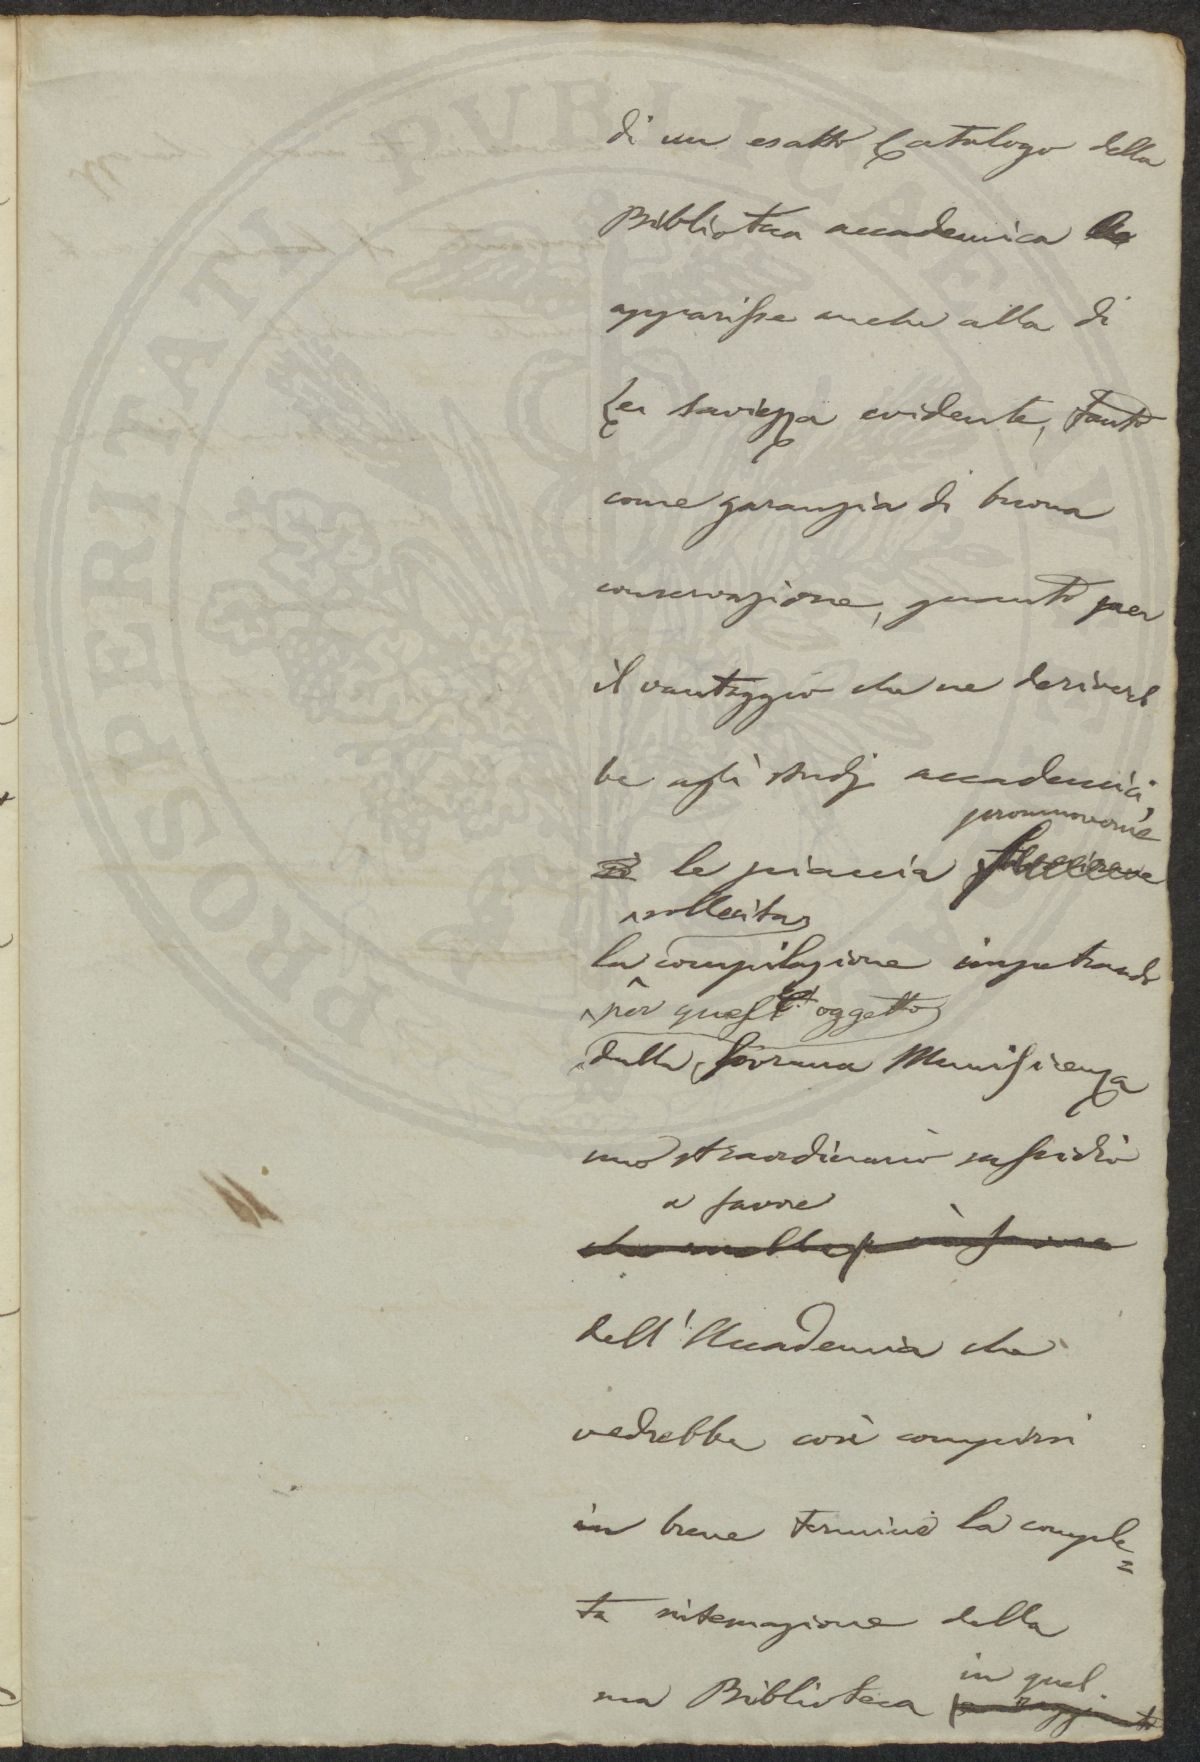 di un esatto Catalogo della
Biblioteca accademica
apparisse anche alla di
Lei saviezza evidente, tanto
come garanzia di buona
conservazione, quanto per
il vantaggio che ne deriverb
be agli studj accademici,
promuoverne
le piaccia
sollecita
la compilazione impetrando
per quest' oggetto
dalla Sovrana Munificenza
uno straordinario sussidio
a favore
dell'Accademia che
vedrebbe così compirsi
in breve termine la comple=
ta sistemazione della
sua Biblioteca
in quel
PROSPERITATI PVBLICAE